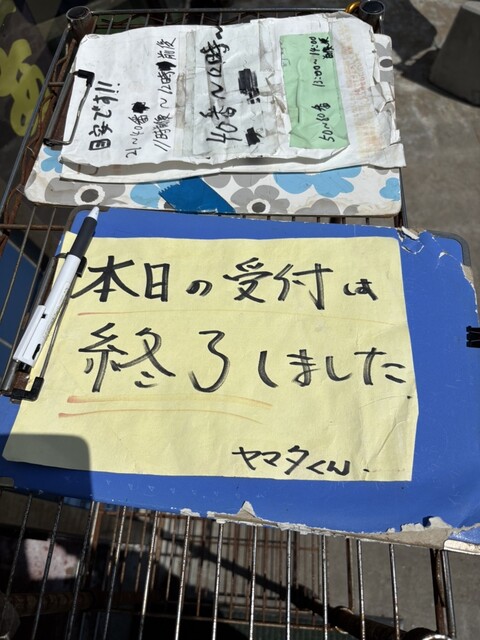 目安です!!
21~40番
11時頃~12時前後
40番~12時~
50~60番 13:00~14:00
本日の受付は
終了しました
ヤマタくん.